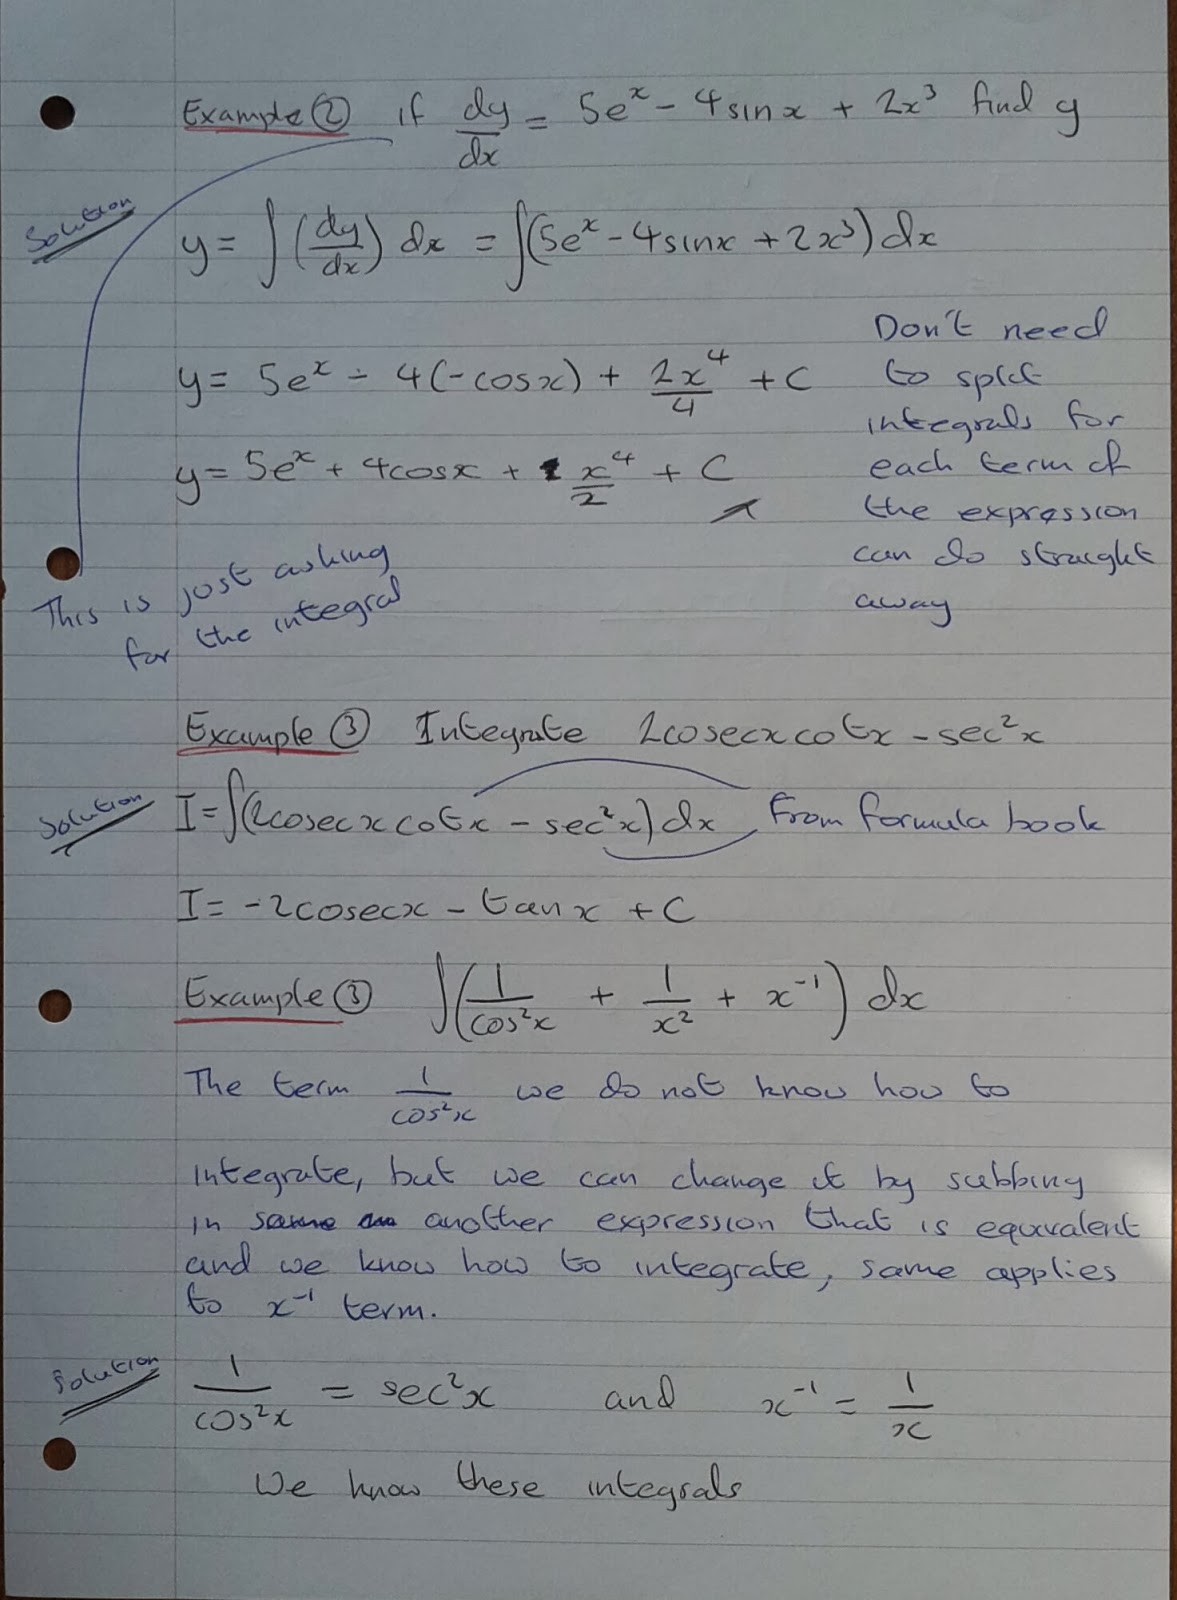 Example ② if dy/dx = 5eˣ - 4sinx + 2x³ find y
Solution
y = ∫(dy/dx) dx = ∫(5eˣ - 4sinx + 2x³) dx
y = 5eˣ - 4(-cosx) + 2x⁴/4 + C
y = 5eˣ + 4cosx + x⁴/2 + C
Don't need
to split
integrals for
each term of
the expression
can do straight
away
This is just asking
for the integral
Example ③ Integrate 2cosecxcotx - sec²x
Solution
I = ∫(2cosecxcotx - sec²x) dx From formula book
I = -2cosecx - tanx + C
Example ③ ∫(1/cos²x + 1/x² + x⁻¹) dx
The term 1/cos²x we do not know how to
integrate, but we can change it by subbing
in another expression that is equivalent
and we know how to integrate, same applies
to x⁻¹ term.
Solution
1/cos²x = sec²x and x⁻¹ = 1/x
We know these integrals